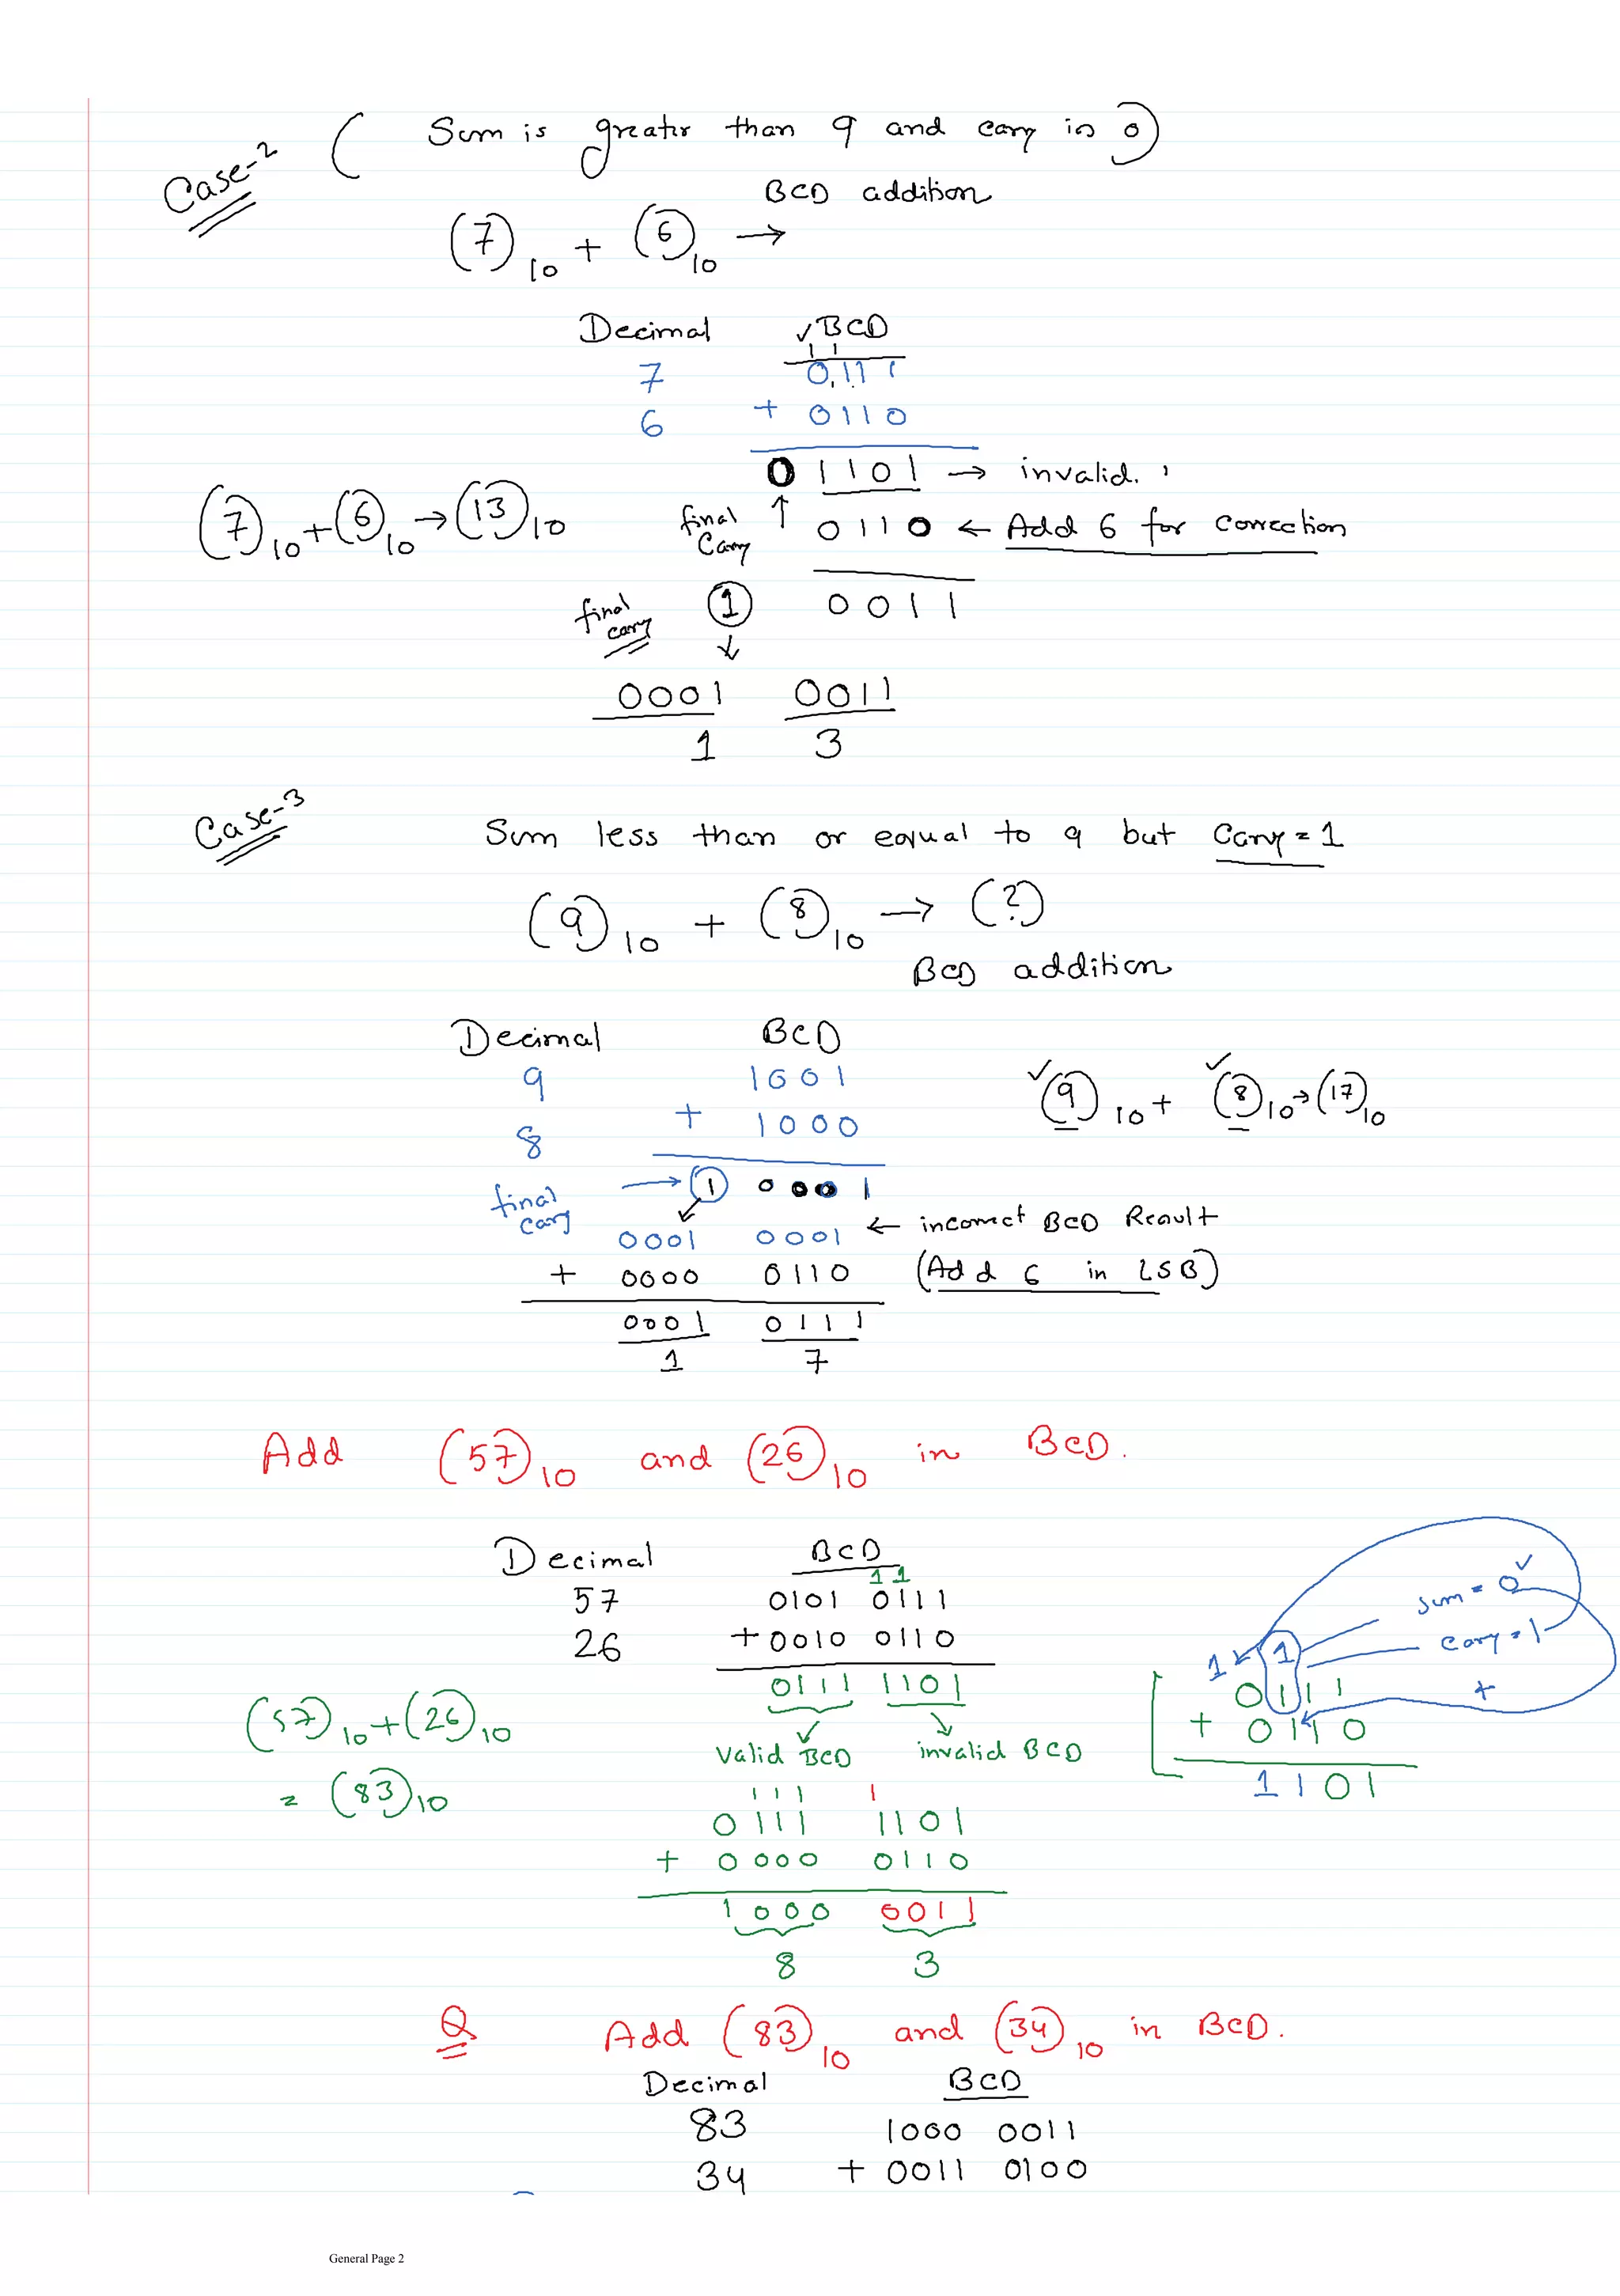 Case-2 ( Sum is greater than 9 and carry is 0 )
BCD addition
(7)10 + (6)10 →
Decimal ✓BCD
1 1
7 0111
6 + 0110
0 1101 → invalid.
(7)10 + (6)10 → (13)10
final carry ↑ 0110 ← Add 6 for correction
final carry 1 0011
↓
0001 0011
1 3
Case-3 Sum less than or equal to 9 but Carry = 1
(9)10 + (8)10 → (?)
BCD addition
Decimal BCD
9 1001
8 + 1000
✓(9)10 + ✓(8)10 → (17)10
final carry → 1 0001
0001 0001 ← incorrect BCD Result
+ 0000 0110 (Add 6 in LSB)
0001 0111
1 7
Add (57)10 and (26)10 in BCD.
Decimal BCD
1 1
57 0101 0111
26 + 0010 0110
0111 1101
Valid BCD invalid BCD
(57)10 + (26)10
= (83)10
sum = 0 ✓
carry = 1
+
1 1
0111
+ 0110
1101
1 1 1 1
0111 1101
+ 0000 0110
1000 0011
8 3
Q Add (83)10 and (34)10 in BCD.
Decimal BCD
83 1000 0011
34 + 0011 0100
General Page 2